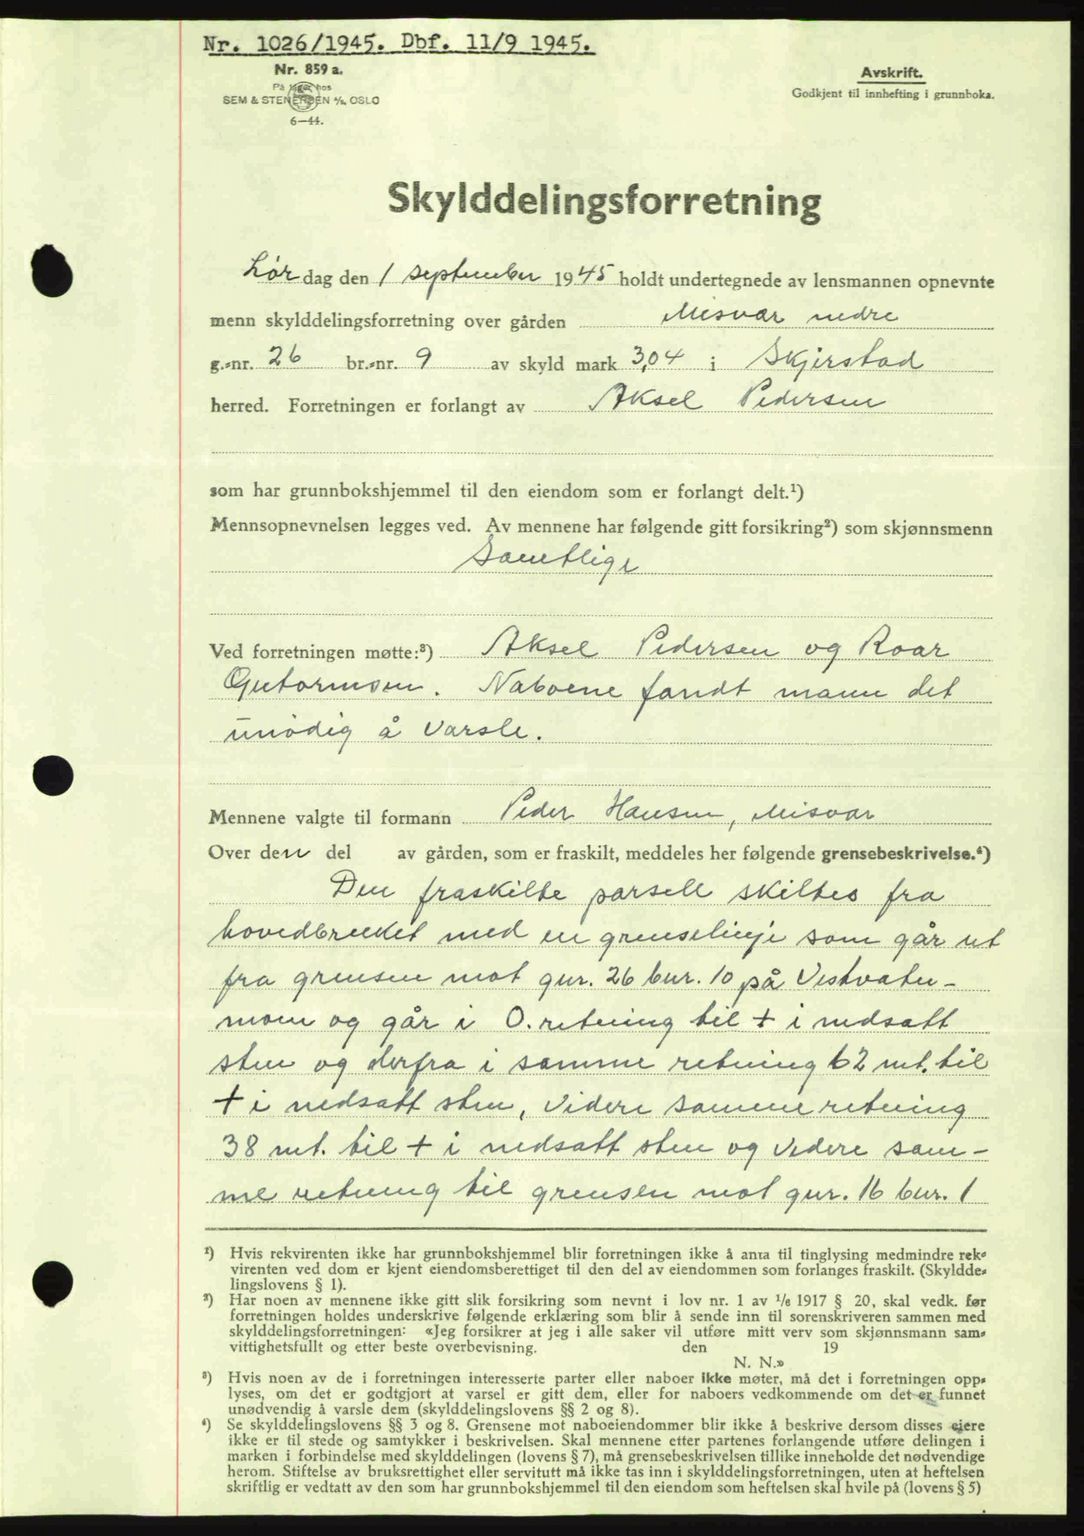 Nr. 1026/1945. Dbf. 11/9 1945.
Nr. 859 a.
På lager hos
SEM & STENERSEN A/S, OSLO
6—44.
Avskrift.
Godkjent til innhefting i grunnboka.
Skylddelingsforretning
Lør dag den 1 september 1945 holdt undertegnede av lensmannen opnevnte
menn skylddelingsforretning over gården Misvær nedre
g.-nr. 26 br.-nr. 9 av skyld mark 3,04 i Skjerstad
herred. Forretningen er forlangt av Aksel Pedersen
som har grunnbokshjemmel til den eiendom som er forlangt delt.¹)
Mennsopnevnelsen legges ved. Av mennene har følgende gitt forsikring²) som skjønnsmenn
Samtlige
Ved forretningen møtte:³) Aksel Pedersen og Roar
Gutormsen. Naboene fandt mann det
unødig å varsle.
Mennene valgte til formann Peder Hansen, Misvær
Over den del av gården, som er fraskilt, meddeles her følgende grensebeskrivelse.⁴)
Den fraskilte parsell skilles fra
hovedbruket med en grenselinje som går ut
fra grensen mot gnr. 26 bnr. 10 på Vestvatn-
moen og går i O. retning til + i nedsatt
sten og derfra i samme retning 62 mt. til
+ i nedsatt sten, videre samme retning
38 mt. til + i nedsatt sten og videre sam-
me retning til grensen mot gnr. 16 bnr. 1
¹) Hvis rekvirenten ikke har grunnbokshjemmel blir forretningen ikke å anta til tinglysing medmindre rek-
virenten ved dom er kjent eiendomsberettiget til den del av eiendommen som forlanges fraskilt. (Skyldde-
lingslovens § 1).
²) Har noen av mennene ikke gitt slik forsikring som nevnt i lov nr. 1 av 1/6 1917 § 20, skal vedk. før
forretningen holdes underskrive følgende erklæring som blir å sende inn til sorenskriveren sammen med
skylddelingsforretningen: «Jeg forsikrer at jeg i alle saker vil utføre mitt verv som skjønnsmann sam-
vittighetsfullt og etter beste overbevisning. den 19
N. N.»
³) Hvis noen av de i forretningen interesserte parter eller naboer ikke møter, må det i forretningen opp-
lyses, om det er godtgjort at varsel er gitt dem, eller for naboers vedkommende om det er funnet
unødvendig å varsle dem (skylddelingslovens §§ 2 og 8).
⁴) Se skylddelingslovens §§ 3 og 8. Grensene mot naboeiendommer blir ikke å beskrive dersom disses eiere
ikke er til stede og samtykker i beskrivelsen. Skal mennene etter partenes forlangende utføre delingen i
marken i forbindelse med skylddelingen (lovens § 7), må grensebeskrivelsen tillike inneholde det nødvendige
herom. Stiftelse av bruksrettighet eller servitutt må ikke tas inn i skylddelingsforretningen, uten at heftelsen
skriftlig er vedtatt av den som har grunnbokshjemmel til den eiendom som heftelsen skal hvile på (lovens § 5)